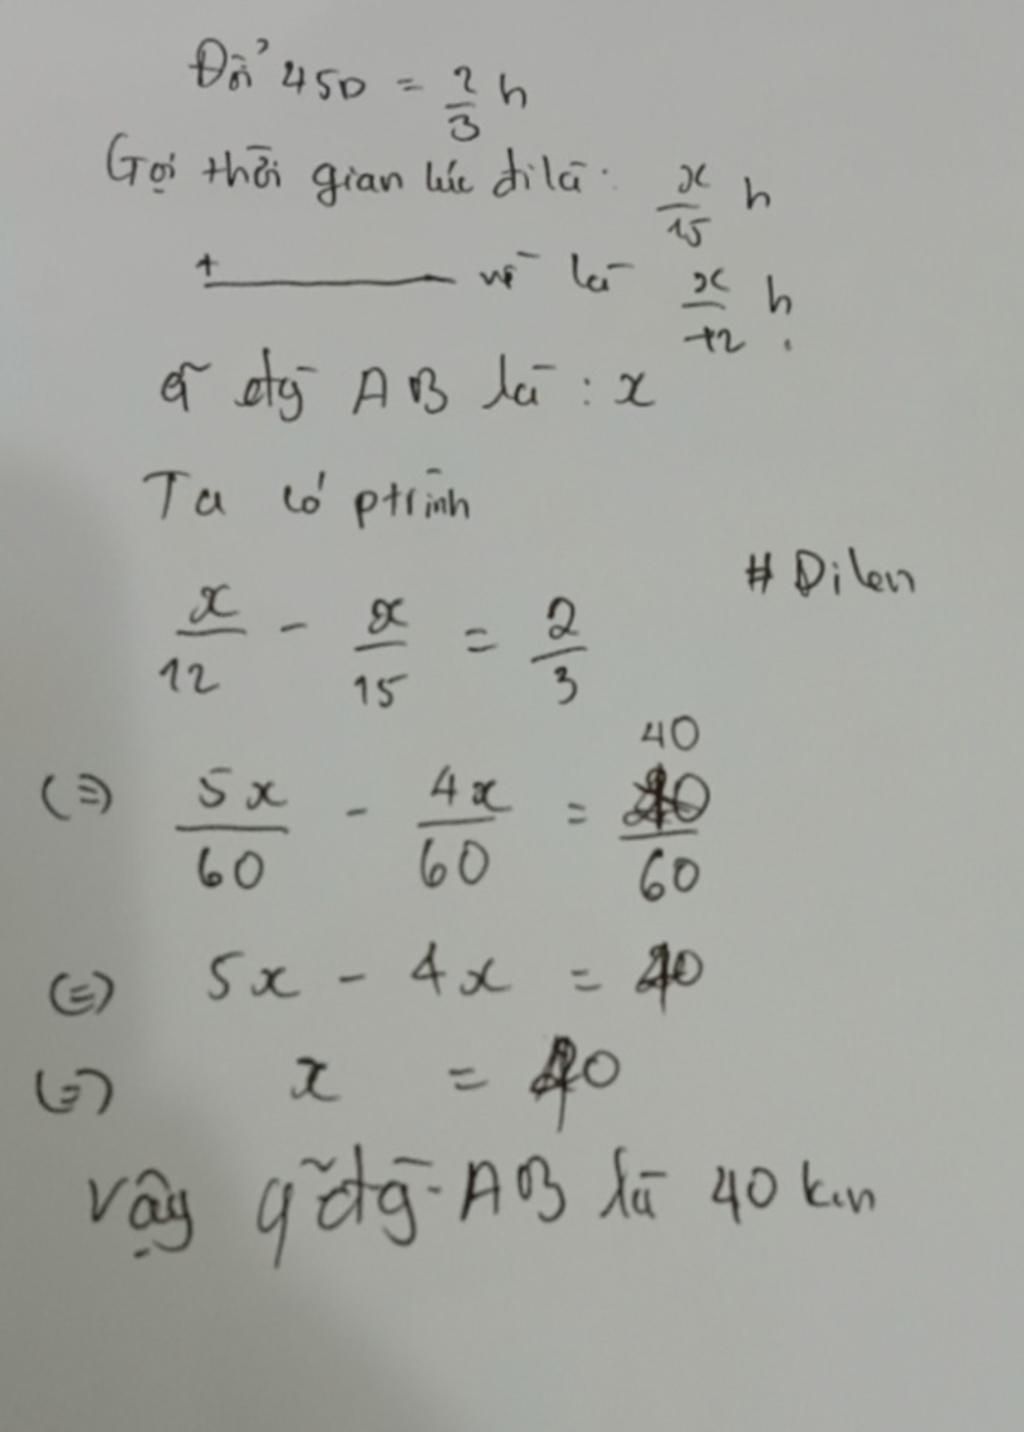 Đổi 45p = 2/3 h
Gọi thời gian lúc đi là: x/15 h
t ——— về là x/12 h.
q̃ đg̀ AB là : x
Ta có ptrình
x/12 - x/15 = 2/3
# Dilen
40
(=) 5x/60 - 4x/60 = 40/60
(=) 5x - 4x = 40
(=) x = 40
Vậy q̃ đg̀ AB là 40 km